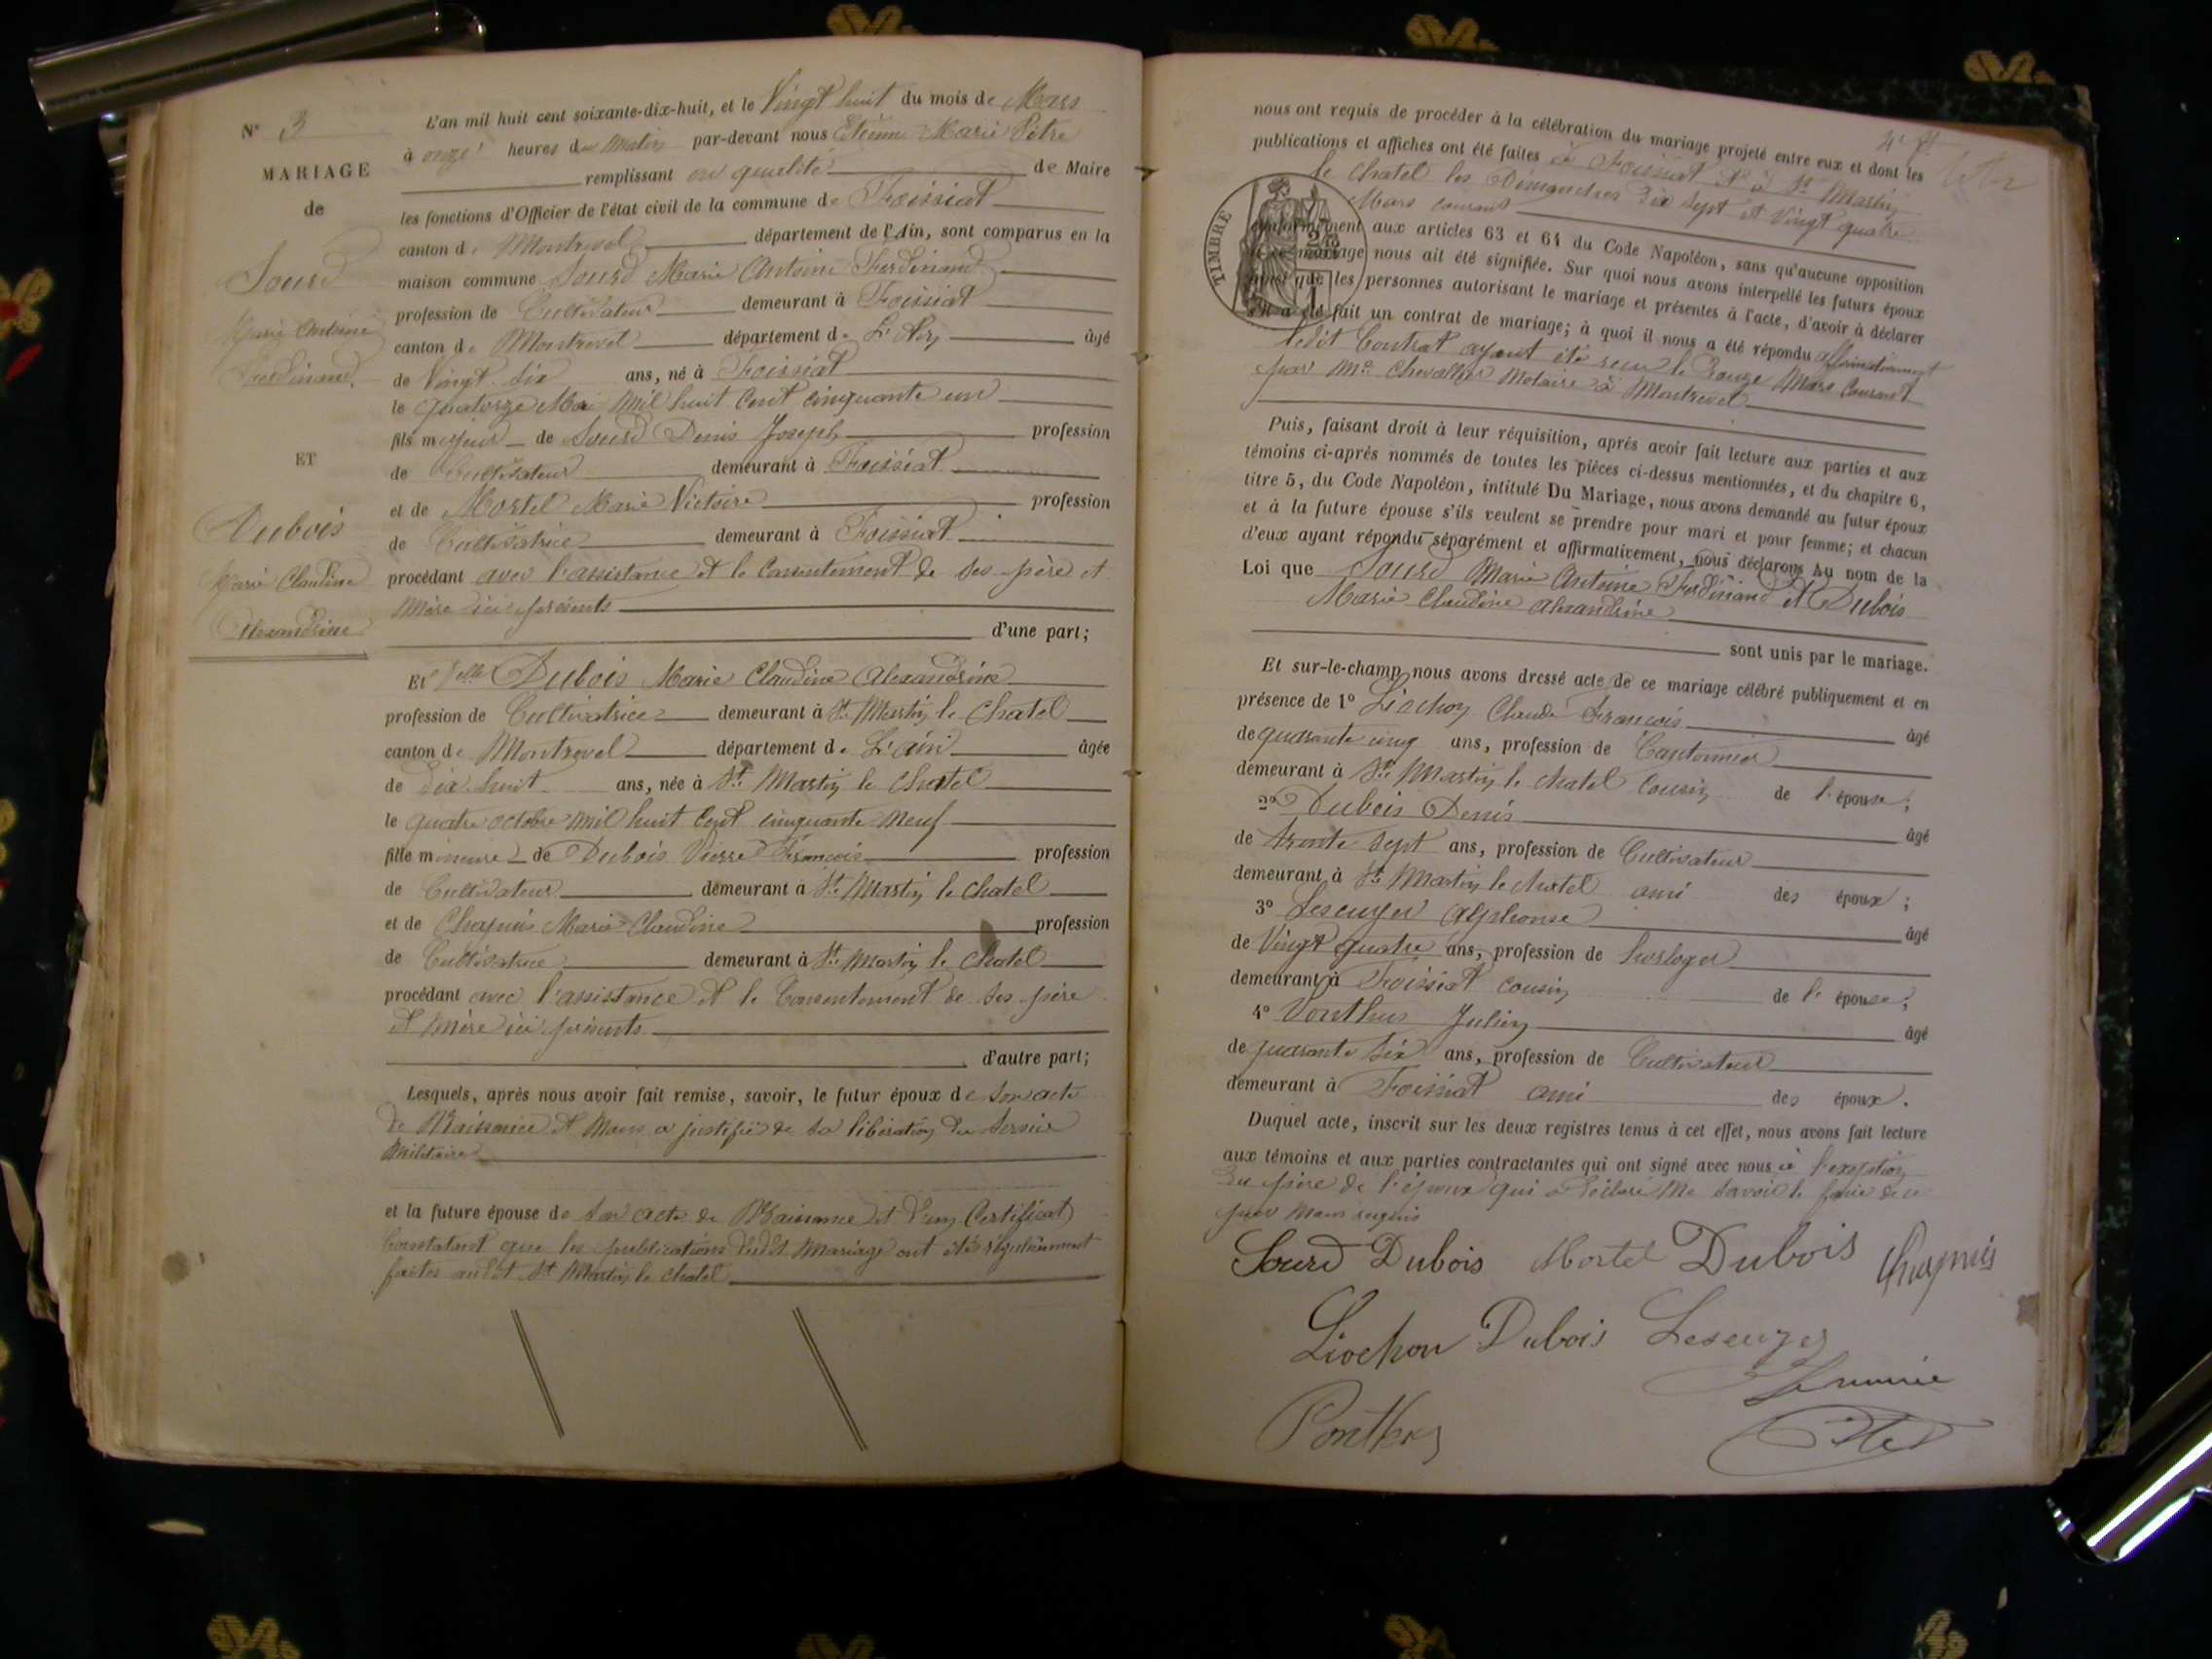 N° 3
MARIAGE
de
Sourd
Marie Antoine
Ferdinand.
ET
Dubois
Marie Claudine
Alexandrine
L'an mil huit cent soixante-dix-huit, et le Vingt huit du mois de Mars
à onze heures du Matin par-devant nous Etienne Marie Pitre
remplissant en qualité de Maire
les fonctions d'Officier de l'état civil de la commune de Foissiat
canton de Montrevel département de l'Ain, sont comparus en la
maison commune Sourd Marie Antoine Ferdinand
profession de Cultivateur demeurant à Foissiat
canton de Montrevel département de L'Ain âgé
de Vingt six ans, né à Foissiat
le quatorze Mai mil huit Cent cinquante un
fils majeur de Sourd Denis Joseph profession
de Cultivateur demeurant à Foissiat
et de Mortel Marie Victoire profession
de Cultivatrice demeurant à Foissiat
procédant avec l'assistance et le Consentement de ses père et
Mère ici présents
d'une part;
Et Delle Dubois Marie Claudine Alexandrine
profession de Cultivatrice demeurant à St Martin le Chatel
canton de Montrevel département de L'ain âgée
de dix huit ans, née à St Martin le Chatel
le quatre octobre mil huit Cent cinquante Neuf
fille mineure de Dubois Pierre François profession
de Cultivateur demeurant à St Martin le Chatel
et de Chapuis Marie Claudine profession
de Cultivatrice demeurant à St Martin le Chatel
procédant avec l'assistance et le Consentement de ses père
et Mère ici présents
d'autre part;
Lesquels, après nous avoir fait remise, savoir, le futur époux de son acte
de Naissance et Mous a justifié de sa libération du Service
Militaire
et la future épouse de son acte de Naissance et d'un Certificat
Constatant que les publications dudit Mariage ont été régulièrement
faites audit St Martin le Chatel
nous ont requis de procéder à la célébration du mariage projeté entre eux et dont les
publications et affiches ont été faites à Foissiat et à St Martin
le Chatel les Dimanches Dix Sept et Vingt quatre
Mars courant
TIMBRE
conformément aux articles 63 et 64 du Code Napoléon, sans qu'aucune opposition
à ce mariage nous ait été signifiée. Sur quoi nous avons interpellé les futurs époux
ainsi que les personnes autorisant le mariage et présentes à l'acte, d'avoir à déclarer
s'il a été fait un contrat de mariage; à quoi il nous a été répondu affirmativement
ledit Contrat ayant été reçu le Mars Courant
par Me Chevallier Notaire à Montrevel
Puis, faisant droit à leur réquisition, après avoir fait lecture aux parties et aux
témoins ci-après nommés de toutes les pièces ci-dessus mentionnées, et du chapitre 6,
titre 5, du Code Napoléon, intitulé Du Mariage, nous avons demandé au futur époux
et à la future épouse s'ils veulent se prendre pour mari et pour femme; et chacun
d'eux ayant répondu séparément et affirmativement, nous déclarons Au nom de la
Loi que Sourd Marie Antoine Ferdinand et Dubois
Marie Claudine Alexandrine
sont unis par le mariage.
Et sur-le-champ nous avons dressé acte de ce mariage célébré publiquement et en
présence de 1° Liochon Claude François âgé
de quarante cinq ans, profession de Cantonnier
demeurant à St Martin le Chatel Cousin de l'épouse;
2° Dubois Denis âgé
de trente sept ans, profession de Cultivateur
demeurant à St Martin le Chatel ami des époux;
3° Lescuyer Alphonse âgé
de Vingt quatre ans, profession de horloger
demeurant à Foissiat cousin de l'épouse;
4° Ponthus Julien âgé
de quarante six ans, profession de Cultivateur
demeurant à Foissiat ami des époux.
Duquel acte, inscrit sur les deux registres tenus à cet effet, nous avons fait lecture
aux témoins et aux parties contractantes qui ont signé avec nous à l'exeption
du père de l'époux qui a déclaré Ne savoir le faire de ce
par Mous requis
Sourd Dubois Mortel Dubois Chapuis
Liochon Dubois Lescuyer
Le maire
Ponthus Pitre